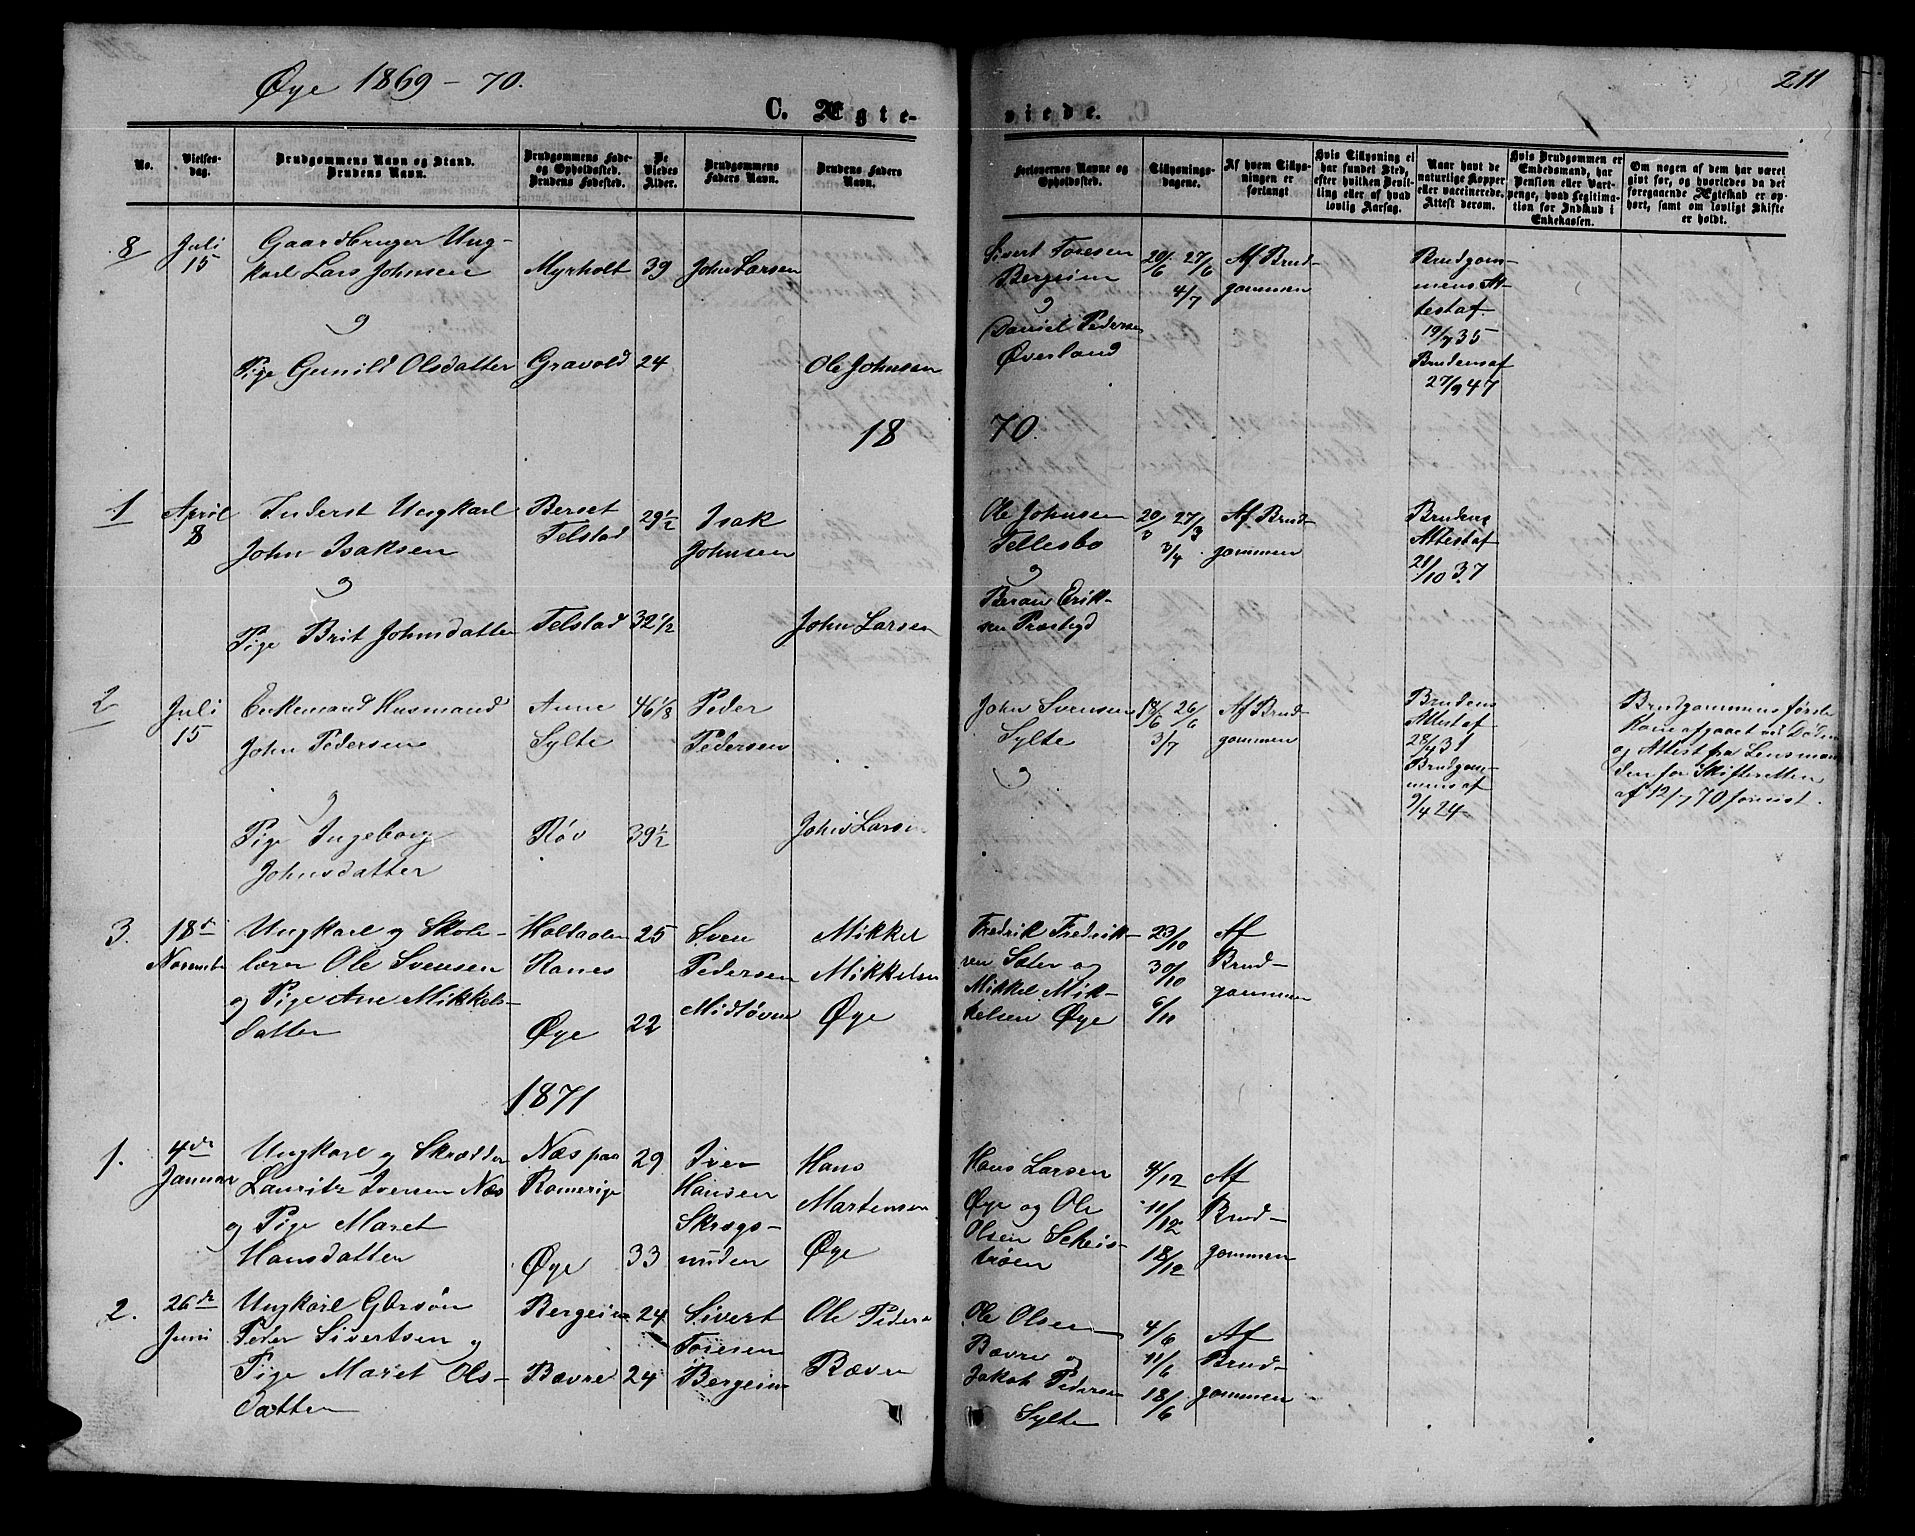 Øye 1869-70.
211
C. Ægteviede.
No.
Vielsesdag.
Brudgommens Navn og Stand.
Brudens Navn.
Brudgommens Fødeog Opholdssted.
Brudens Fødested.
De
Viedes
Alder.
Brudgommens
Faders Navn.
Brudens Faders
Navn.
Forlovernes Navne og
Opholdssted.
Tillysningsdagene.
Af hvem Tillysningen er
forlangt
Hvis Tillysning ei
har fundet Sted,
efter hvilken Bevilling eller af hvad
lovlig Aarsag.
Naar havt de
naturlige Kopper
eller vaccinerede.
Attest derom.
Hvis Brudgommen er
Embedsmand, har
Pension eller Vartpenge, hvad Legitimation for Indskud i
Enkekassen.
Om nogen af dem har været
gift før, og hvorledes da det
foregaaende Ægteskab er ophørt, samt om lovligt Skifte
er holdt.
8
Juli
15
Gaardbruger Ungkarl Lars Johnsen
Myrholt
39
John Larsen
Sivert Toresen
Bergeim
20/6 27/6
4/7
Af Brudgommen
Brudgommens Attest af
19/7 35
og
Pige Gunild Olsdatter
Gravold
24
Ole Johnsen
Daniel Pedersen
Øverland
Brudens af
27/9 47
1870.
1
April
8
Inderst Ungkarl
John Isaksen
Berset
Telstad
29½
Isak
Johnsen
Ole Johnsen
Tellesbo
20/3 27/3
3/4
Af Brudgommen
Brudens
Attest af
21/10 37
og
Pige Brit Johnsdatter
Telstad
32½
John Larsen
Beran Eriksen Præstegd
2
Juli
15
Enkemand Husmand
John Pedersen
Aune
Sylte
46⅛
Peder
Pedersen
John Svensen
Sylte
19/6 26/6
3/7
Af Brudgommen
Brudens
Attest af
28/7 31
Brudgommens af
9/4 24
Brudgommens første
Kone afgaaet ved Døden
og Attest fra Lensmanden for Skifteretten
af 12/7 70 forevist.
og
Pige Ingeborg
Johnsdatter
Røv
39½
John Larsen
3.
18de
Novembr
Ungkarl og Skolelærer Ole Svensen
og Pige Ane Mikkelsdatter
Holtaalen
Ranes
Øye
25
22
Sven
Pedersen
Midtløven
Mikkel
Mikkelsen
Øye
Fredrik Fredriksen Sæter og
Mikkel Mikkelsen Øye
23/10
30/10
6/11
Af
Brudgommen
1871
1.
4de
Januar
Ungkarl og Skrædder
Lauritz Iversen Næs
og Pige Maret
Hansdatter
Næs paa
Romerige
Øye
29
33
Iver
Hansen
Skrøgsnuden
Hans
Martensen
Øye
Hans Larsen
Øye og Ole
Olsen Scheistrøen
4/12
11/12
18/12
Af
Brudgommen
2.
26de
Juni
Ungkarl Gbrsøn
Peder Sivertsen og
Pige Maret Olsdatter
Bergeim
Bævre
24
24
Sivert
Toresen
Bergeim
Ole Peders
Bævre
Ole Olsen
Bævre og
Jakob Pedersen
Sylte
4/6
11/6
18/6
Af
Brudgommen